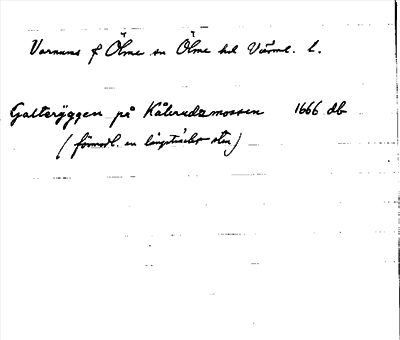 Varnums f Ölme sn Ölme hd Värml. l.
Galteryggen på Kålerudsmossen 1666 db
(förmodl. en långsträckt sten)